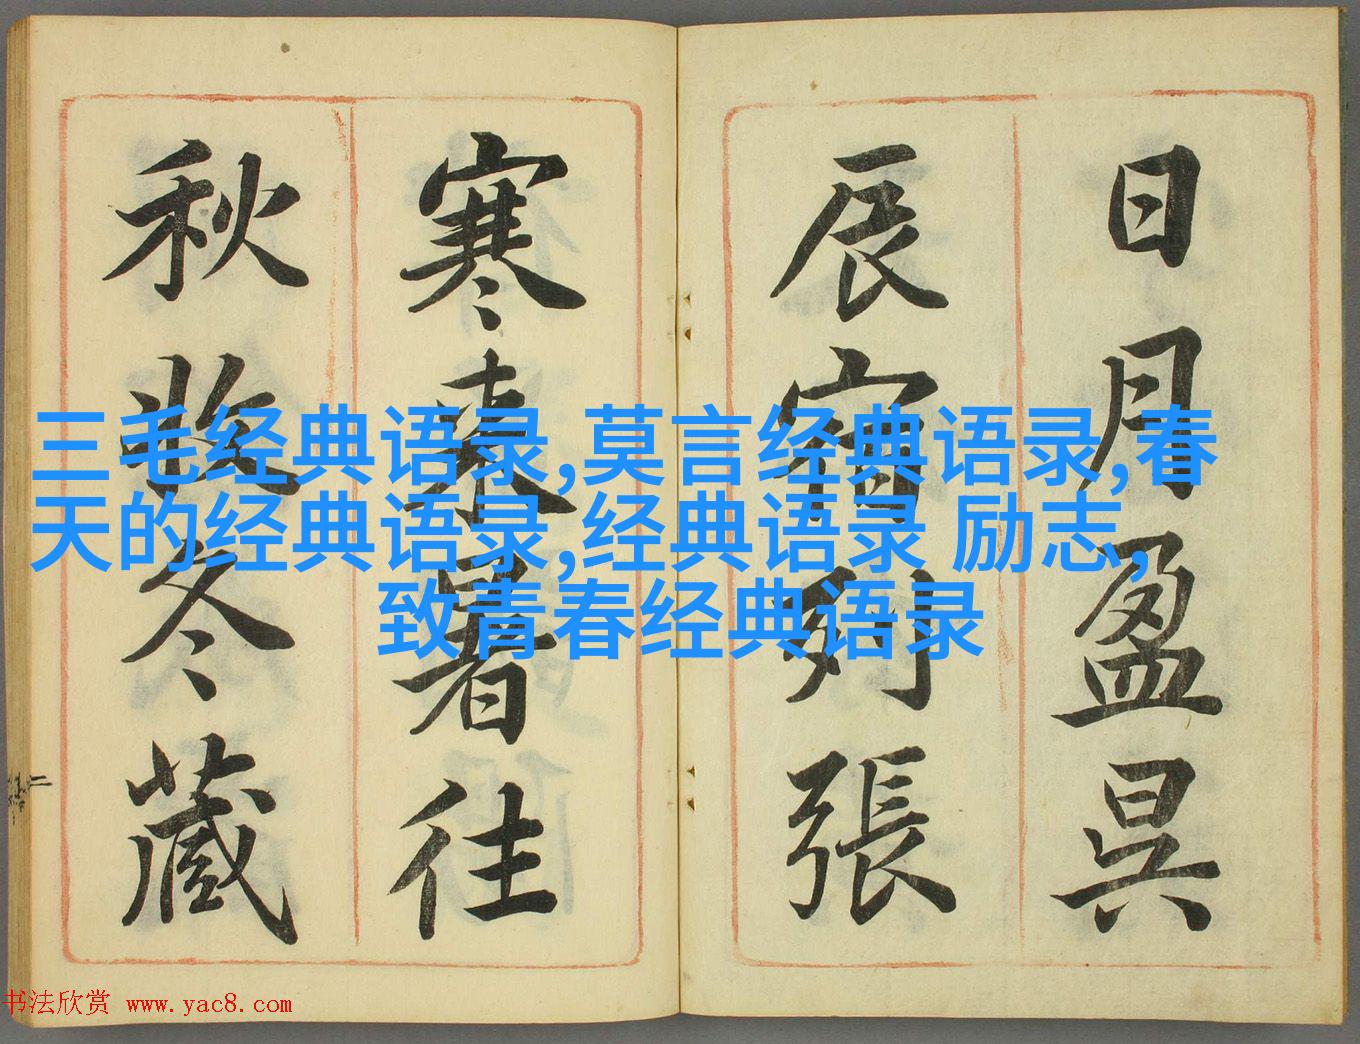 日月盈昃
辰宿列張
寒来暑往
秋收冬藏
三毛经典语录,莫言经典语录,春
天的经典语录,经典语录 励志,
致青春经典语录
书法欣赏 www.yac8.com